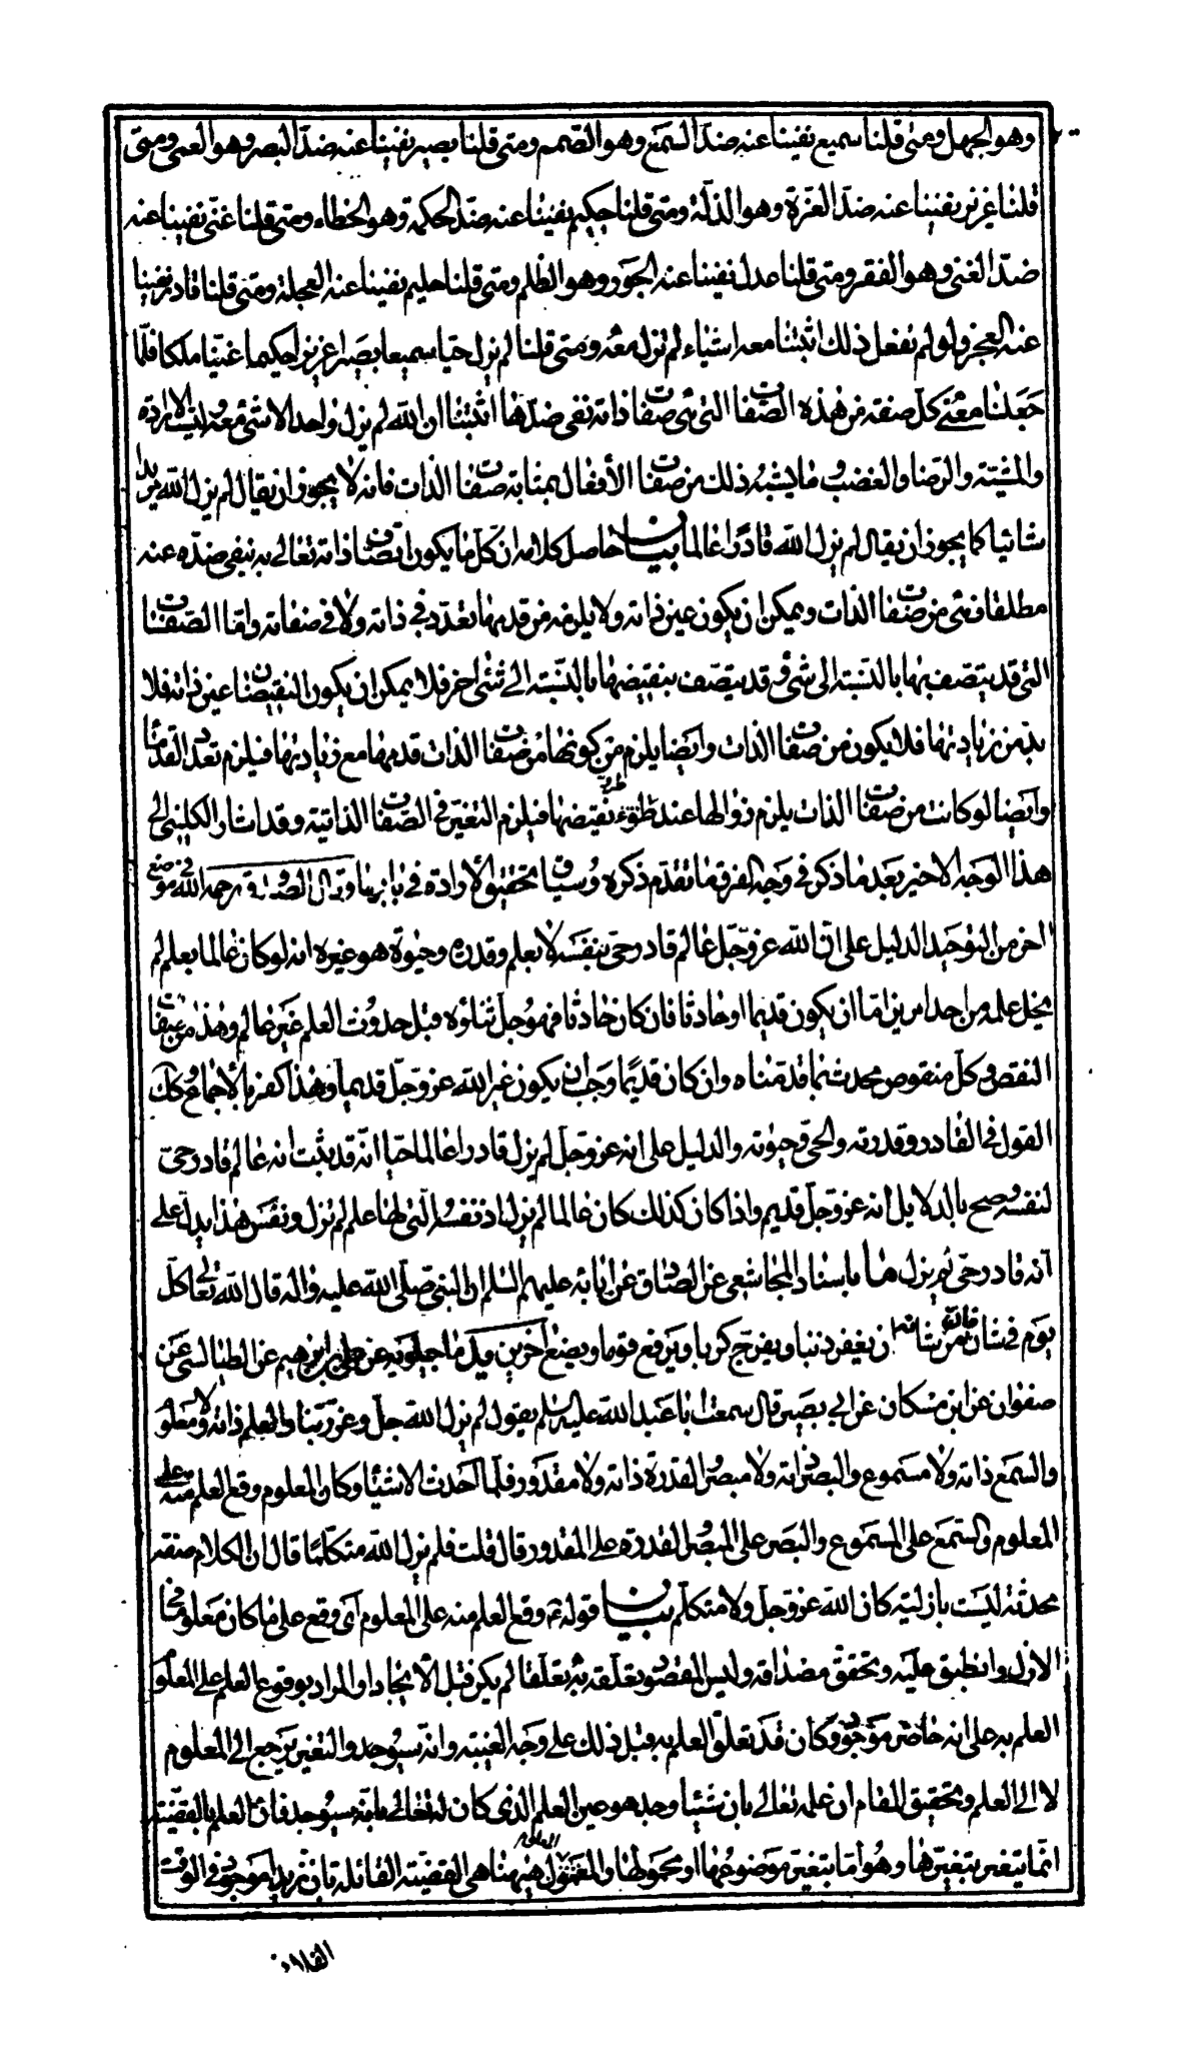 وهو الجهل ومتى قلنا سميع نفينا عنه ضدّ السمع وهو الصمم ومتى قلنا بصير نفينا عنه ضدّ البصر وهو العمى ومتى
قلنا عزيز نفينا عنه ضدّ العزة وهو الذلّة ومتى قلنا حكيم نفينا عنه ضدّ الحكمة وهو الخطاء ومتى قلنا غنىّ نفينا عنه
ضدّ الغنى وهو الفقر ومتى قلنا عدل نفينا عنه الجور وهو الظلم ومتى قلنا حليم نفينا عنه العجلة ومتى قلنا قادر نفينا
عنه العجز ولو لم نفعل ذلك اثبتنا معه اشياء لم تزل معه ومتى قلنا لم يزل حيا سميعا بصيرا عزيزا حكيما غنيّا ملكا فلمّا
جعلنا معنى كل صفة من هذه الصفات التى هى صفات ذاته نفى ضدّها اثبتنا ان الله لم يزل واحدا لا شئ معه وليست الارادة
والمشيّة والرضا والغضب وما يشبه ذلك من صفات الأفعال بمثابة صفات الذات فانه لا يجوز ان يقال لم يزل الله مريدا
شائيا كما يجوز ان يقال لم يزل الله قادرا عالما بيان حاصل كلامه ان كل ما يكون اتصاف ذاته تعالى به بنفى ضدّه عنه
مطلقا فهى من صفات الذات ويمكن ان يكون عين ذاته ولا يلزم من قدمها تعدّد فى ذاته ولا فى صفاته وامّا الصفات
التى قد يتصف بها بالنسبة الى شئ وقد يتصف بنقيضها بالنسبة الى شئ اخر فلا يمكن ان يكون النقيضان عين ذاته فلا
بد من زيادتها فلا يكون من صفات الذات وايضا يلزم من كونها من صفات الذات قدمها مع زيادتها فيلزم تعدد القدماء
وايضا لو كانت من صفات الذات يلزم زوالها عند طروّ نقيضها فيلزم التغيّر فى الصفات الذاتية وقد اشار الكلينى الى
هذا الوجه الاخير بعد ما ذكر فى وجه الفرق ما تقدم ذكره وسياتى تحقيق الارادة فى بابها وقال الصدوق رحمه الله فى موضع
اخر من التوحيد الدليل على ان الله عز وجل عالم قادر حىّ بنفسه لا بعلم وقدرة وحيوة هو غيره انه لو كان عالما بعلم لم
يخل علمه من احد امرين امّا ان يكون قديما او حادثا فان كان حادثا فهو جل ثناؤه قبل حدوث العلم غير عالم وهذا من صفات
النقص وكل منقوص محدث بما قدمناه وان كان قديما وجب ان يكون غير الله عز وجل قديما وهذا كفر بالاجماع وكذلك
القول فى القادر وقدرته والحى وحيوته والدليل على انه عز وجل لم يزل قادرا عالما حيا انّه قد ثبت انه عالم قادر حىّ
لنفسه وصح بالدلايل انه عز وجل قديم واذا كان كذلك كان عالما لم يزل اذ نفسه التى لها علم لم تزل ونفس هذا يدل على
انه قادر حىّ لم يزل ما باسناد المجاشعى عن الصادق عن ابائه عليهم السلم ان النبى صلى الله عليه واله قال الله تعالى كل
يوم هو فى شان فان من شانه ان يغفر ذنبا ويفرج كربا ويرفع قوما ويضع اخرين يد ماجيلويه عن على بن ابرهيم عن الطيالسى عن
صفوان عن ابن مسكان عن ابى بصير قال سمعت ابا عبد الله عليه السلم يقول لم يزل الله جل وعز ربّنا والعلم ذاته ولا معلوم
والسمع ذاته ولا مسموع والبصر ذاته ولا مبصر والقدرة ذاته ولا مقدور فلما احدث الاشياء وكان المعلوم وقع العلم منه على
المعلوم والسمع على المسموع والبصر على المبصر والقدرة على المقدور قال قلت فلم يزل الله متكلما قال ان الكلام صفة
محدثة ليست بازلية كان الله عز وجل ولا متكلم بيان قوله ع وقع العلم منه على المعلوم اى وقع على ما كان معلوما فى
الازل وانطبق عليه وتحقق مصداقه وليس المقصود تعلقه به تعلقا لم يكن قبل الايجاد او المراد بوقوع العلم على المعلوم
العلم به على انه حاضر موجود وكان قد تعلق العلم به قبل ذلك على وجه الغيبة وانه سيوجد والتغير يرجع الى المعلوم
لا الى العلم وتحقيق المقام ان علمه تعالى بان شيئا وجد هو عين العلم الذى كان له تعالى بانه سيوجد فان العلم بالقضية
انما يتغير بتغيرها وهو اما بتغير موضوعها او محمولها والمعلوم ههنا هى القضية القائلة بان زيدا موجود فى الوقت
الفلانى